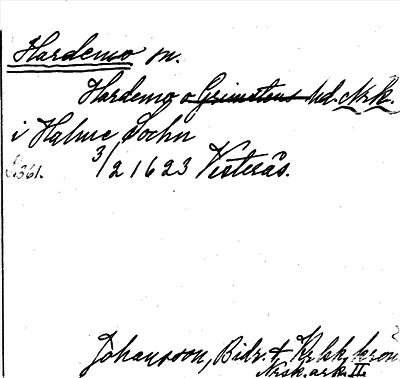 Hardemo sn.
Hardemo o Grimstens hd. Nrk.
i Halme Sochn
3/2 1623 Vesterås.
361.
Johansson, Bidr. t. Nrks kron
Nrsk. ark. II